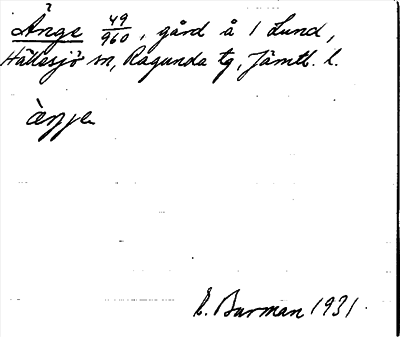 Änge 49/960, gård å 1 Lund,
Hällesjö sn, Ragunda tg, Jämtl. l.
E. Burman 1931.